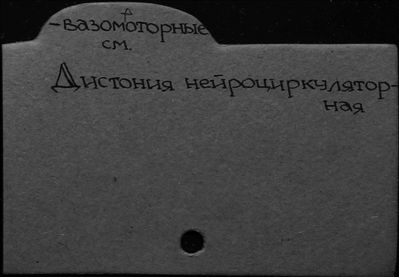 -вазомоторные
см.
Дистония нейроциркулятор-
ная